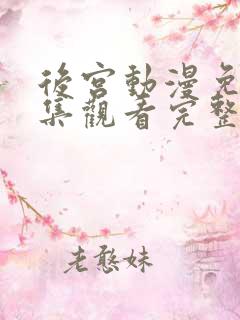 後宮動漫免
集觀看完整
老憨妹